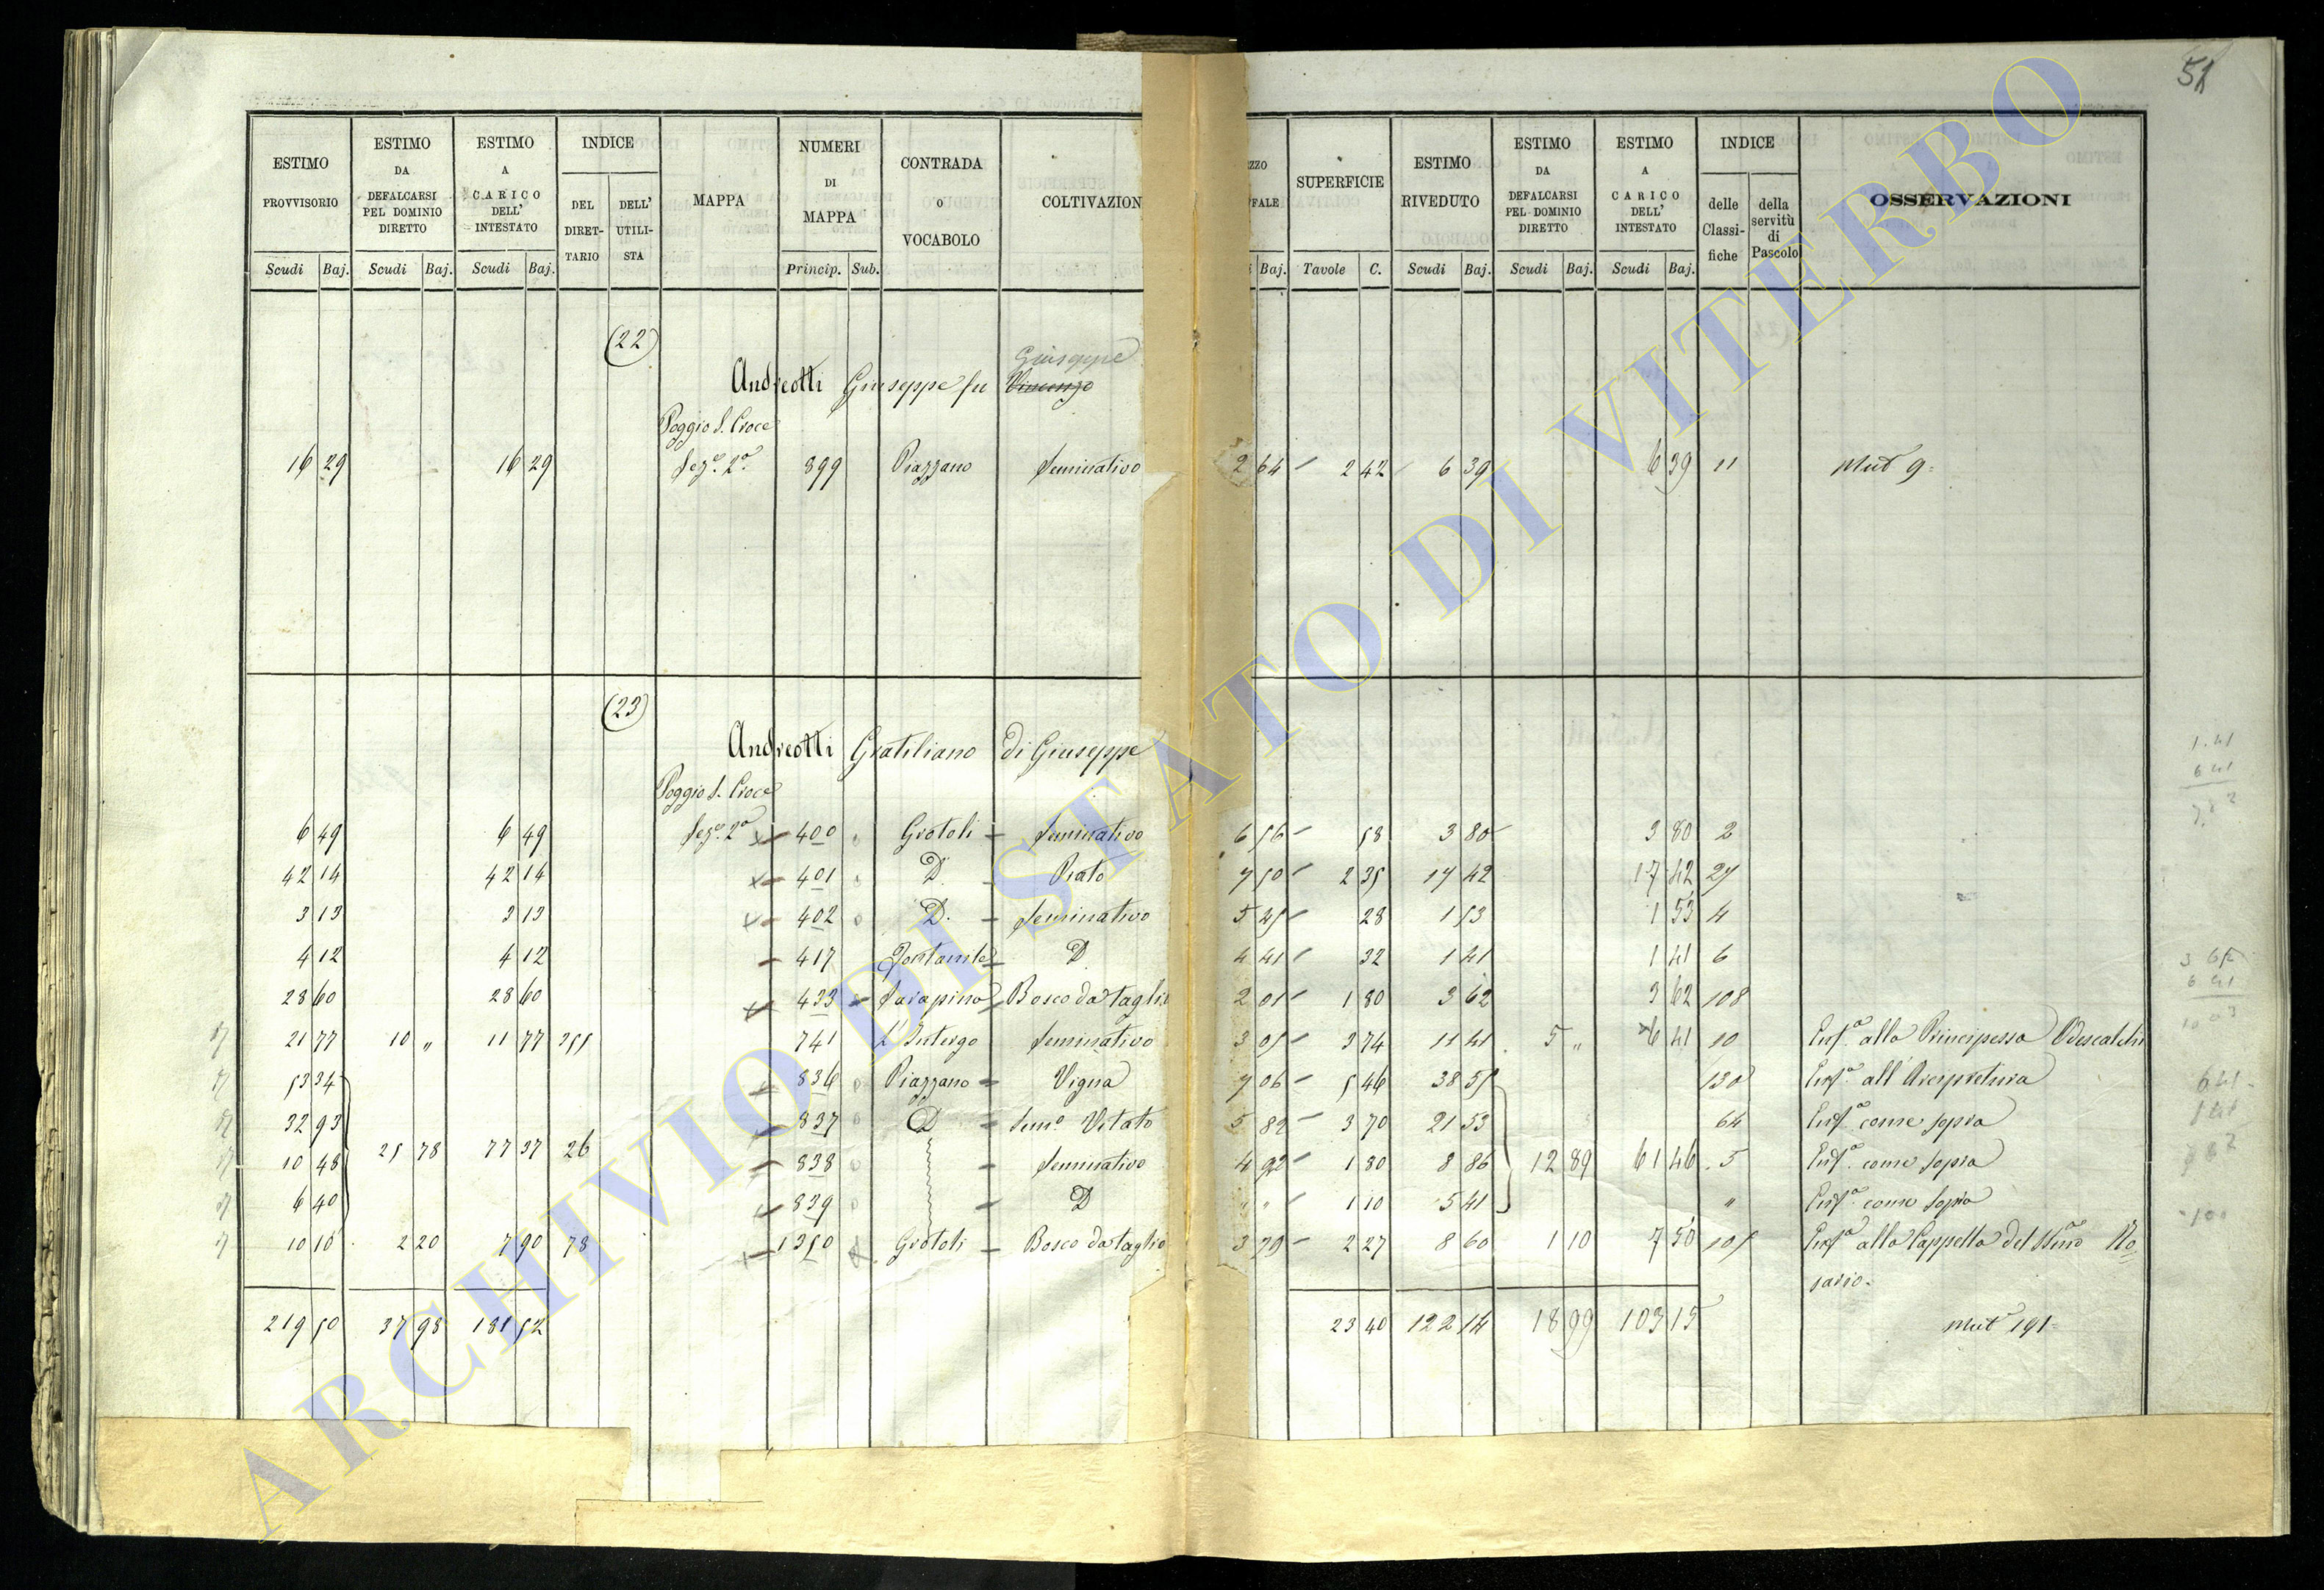 51
ESTIMO PROVVISORIO Scudi Baj.
ESTIMO DA DEFALCARSI PEL DOMINIO DIRETTO Scudi Baj.
ESTIMO A CARICO DELL' INTESTATO Scudi Baj.
INDICE DEL DIRETTARIO DELL' UTILISTA
MAPPA
NUMERI DI MAPPA Princip. Sub.
CONTRADA O VOCABOLO
COLTIVAZION
ZZO FALE Baj.
SUPERFICIE Tavole C.
ESTIMO RIVEDUTO Scudi Baj.
ESTIMO DA DEFALCARSI PEL DOMINIO DIRETTO Scudi Baj.
ESTIMO A CARICO DELL' INTESTATO Scudi Baj.
INDICE delle Classifiche della servitù di Pascolo
OSSERVAZIONI
(22)
Giuseppe
Andreotti Giuseppe fu Vincenzo
Poggio S. Croce
16 29 16 29 Sez.e 2a 899 Piazzano Seminativo 2 64 2 42 6 39 6 39 11 Mut 9
(23)
Andreotti Gratiliano di Giuseppe
Poggio S. Croce
6 49 6 49 Sez.e 2a 400 Grotoli Seminativo 6 56 58 3 80 3 80 2
42 14 42 14 401 D. Prato 7 50 2 35 17 42 17 42 27
3 13 3 13 402 D. Seminativo 5 45 28 1 53 1 53 4
4 12 4 12 417 D 4 41 32 1 41 1 41 6
28 60 28 60 433 Sarapina Bosco da taglio 2 01 1 80 3 62 3 62 108
21 77 10 „ 11 77 255 741 L'Intergo Seminativo 3 05 3 74 11 41 5 „ 6 41 10 Enf.a alla Principessa Odescalchi
53 34 836 Piazzano Vigna 7 06 5 46 38 55 130 Enf.a all'Arcipretura
32 93 837 D Sem.o Vitato 5 82 3 70 21 53 64 Enf.a come sopra
10 48 25 78 77 37 26 838 Seminativo 4 92 1 80 8 86 12 89 61 46 5 Enf.a come sopra
6 40 839 D „ „ 1 10 5 41 „ Enf.a come sopra
10 10 2 20 7 90 78 1350 Grotoli Bosco da taglio 3 79 2 27 8 60 1 10 7 50 105 Enf.a alla Cappella del SSmo Ro
sario.
219 50 37 98 181 52 23 40 122 14 18 99 103 15 Mut 191
1.41
6 41
ARCHIVIO DI STATO DI VITERBO